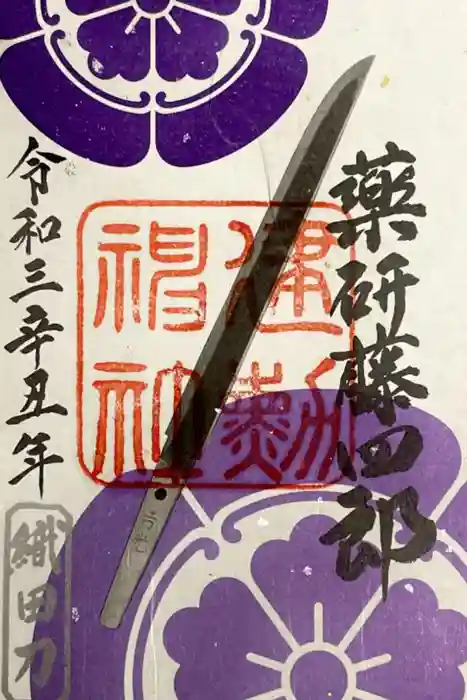 薬研藤四郎
建勲
神社
令和三辛丑年
織田刀